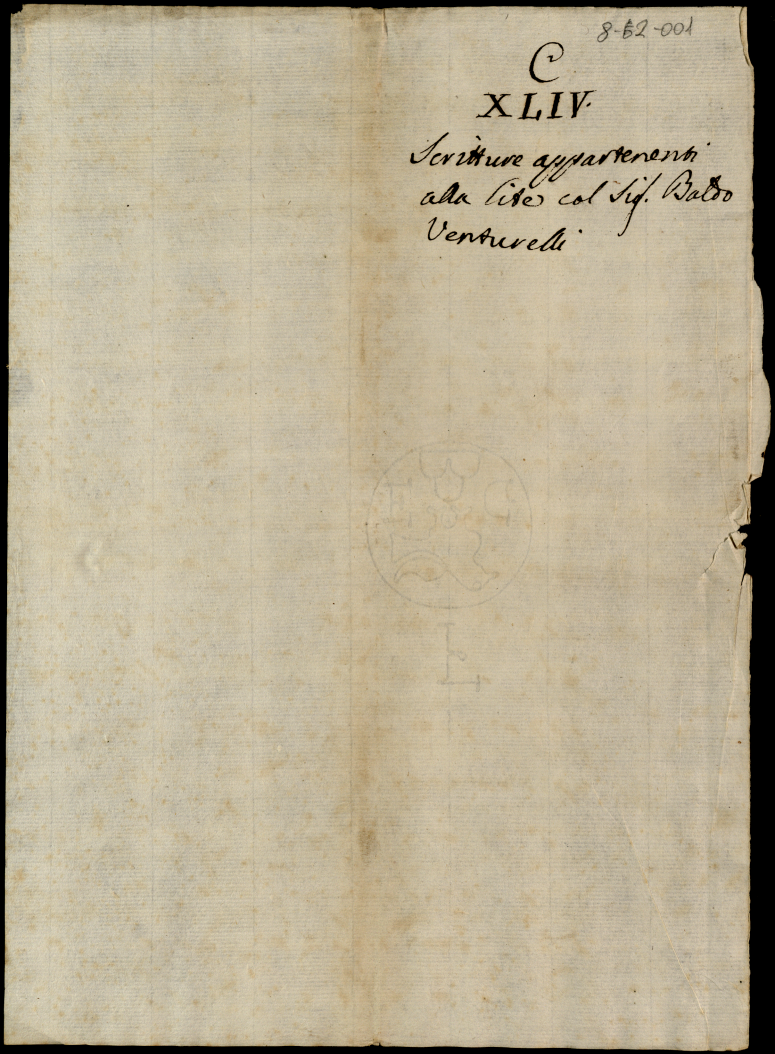 8-52-001
C
XLIV.
Scritture appartenenti
alla lite col Sig. Baldo
Venturelli